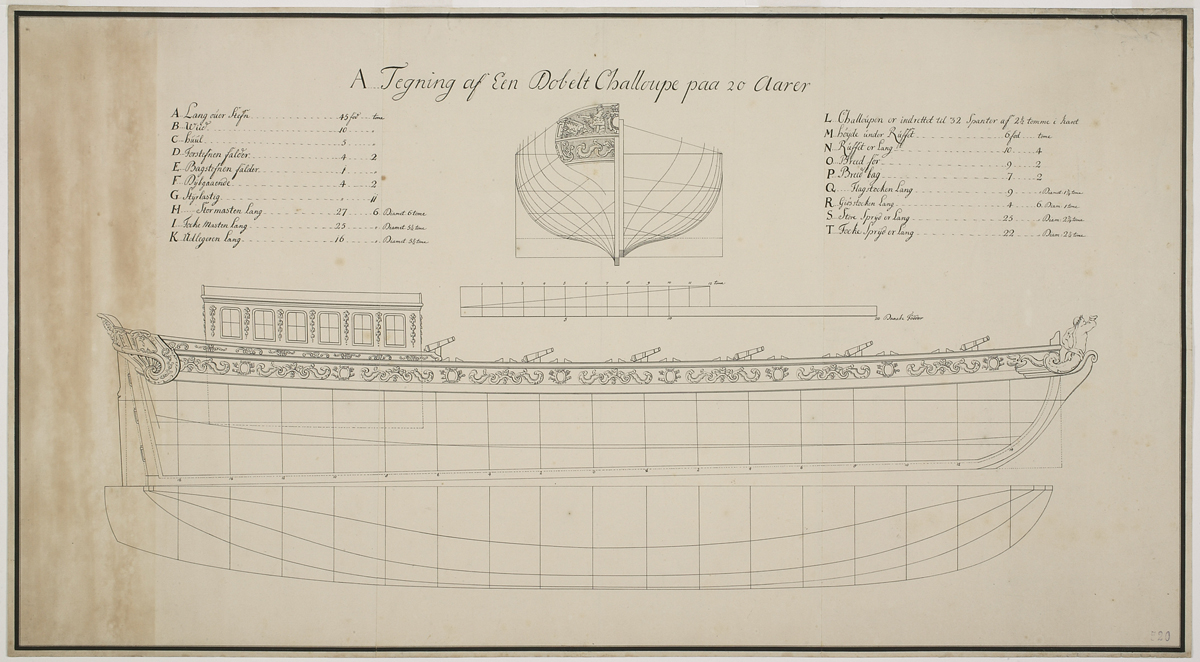 A Tegning af Een Dobelt Challoupe paa 20 Aarer
A Lang ouer Stefn 45 fod tome
B Wud 10 "
C haul 5 "
D Forstefnen falder 4 2
E Bagstefnen falder 1 "
F Dybgaaende 4 2
G Styrlastig " 11
H Stor masten lang 27 6 Diamet 6 tome
I Focke Masten lang 25 " Diamet 5½ tome
K Udlegeren lang 16 " Diamet 3½ tome
L Challoupen er indrettet til 32 Spanter af 2½ tomme i kant
M höyde under Ruffet 6 fod tome
N Ruffet er lang 10 4
O Breed for 9 2
P Breed bag 7 2
Q Flagstocken Lang 9 " Diamet 1½ tome
R Giösstocken lang 4 6 Diam. 1 tome
S Store Spryd er lang 25 " Diam 2¾ tome
T Focke Spryd er lang 22 Diam 2½ tome
tome
Danske Födder
520